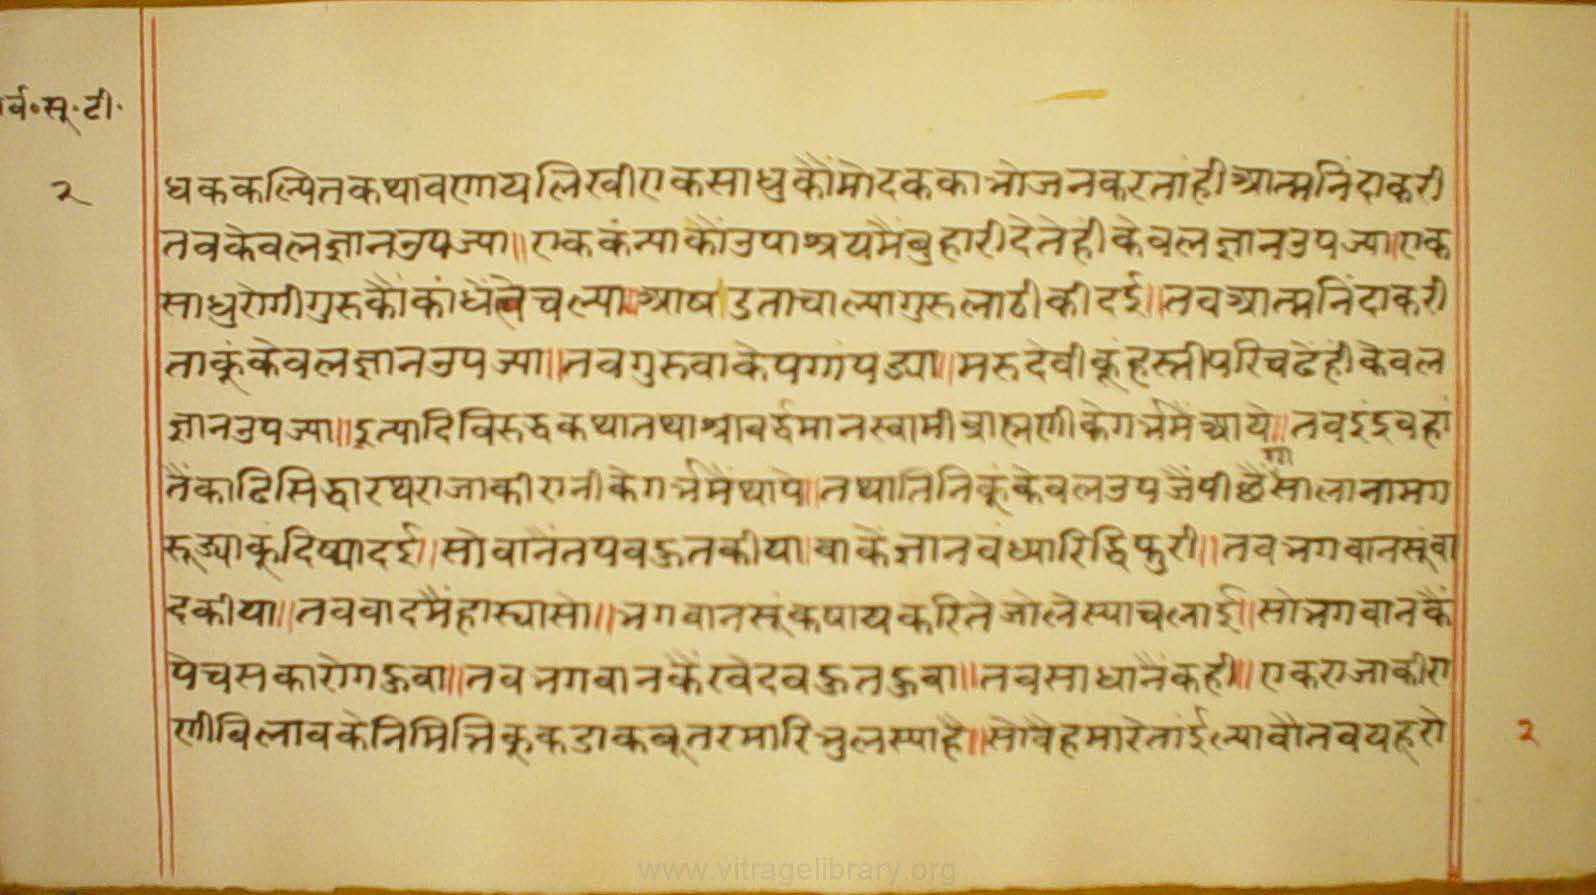 र्व॰सू॰टी॰
२
धककल्पितकथावणायलिखीएकसाधुकौंमोदककाभोजनकरतांहीआत्मनिंदाकरी
तवकेवलज्ञानउपज्या॥एककंन्याकौंउपाश्रयमैंबुहारीदेतेहीकेवलज्ञानउपज्या॥एक
साधुरोगीगुरुकौंकांधैंलेचल्या॥आषडताचाल्यागुरुलाठीकीदई॥तवआत्मनिंदाकरी
ताकूंकेवलज्ञानउपज्या॥तवगुरुवाकेपगांपड्या॥मरुदेवीकूंहस्तीपरिचढेंहीकेवल
ज्ञानउपज्या॥इत्यादिविरुद्धकथातथाश्रावर्द्धमानस्वामीब्राह्मणीकेगर्भमैंआये॥तवइंद्रवहां
तैंकाढिसिद्धारथराजाकीरानीकेगर्भमैंथापे॥तथातिनिकूंकेवलउपजैंपीछैंगोसालानामग
रूड्याकूंदिष्यादई॥सोवानैंतपवहुतकीया॥वाकैंज्ञानवंध्यारिद्धिफुरी॥तवभगवानसूंवा
दकीया॥तववादमैंहास्यासो॥भगवानसूंकषायकरितेजोलेस्याचलाई॥सोभगवानकैं
पेचसकारोगहुवा॥तवभगवानकैंखेदवहुतहुवा॥तवसाधानैंकही॥एकराजाकीरा
णीविलावकेनिमित्तिकूकडाकबूतरमारिभुलस्याहै॥सोवैहमारेतांईल्यावौतवयहरो
२
www.vitragelibrary.org